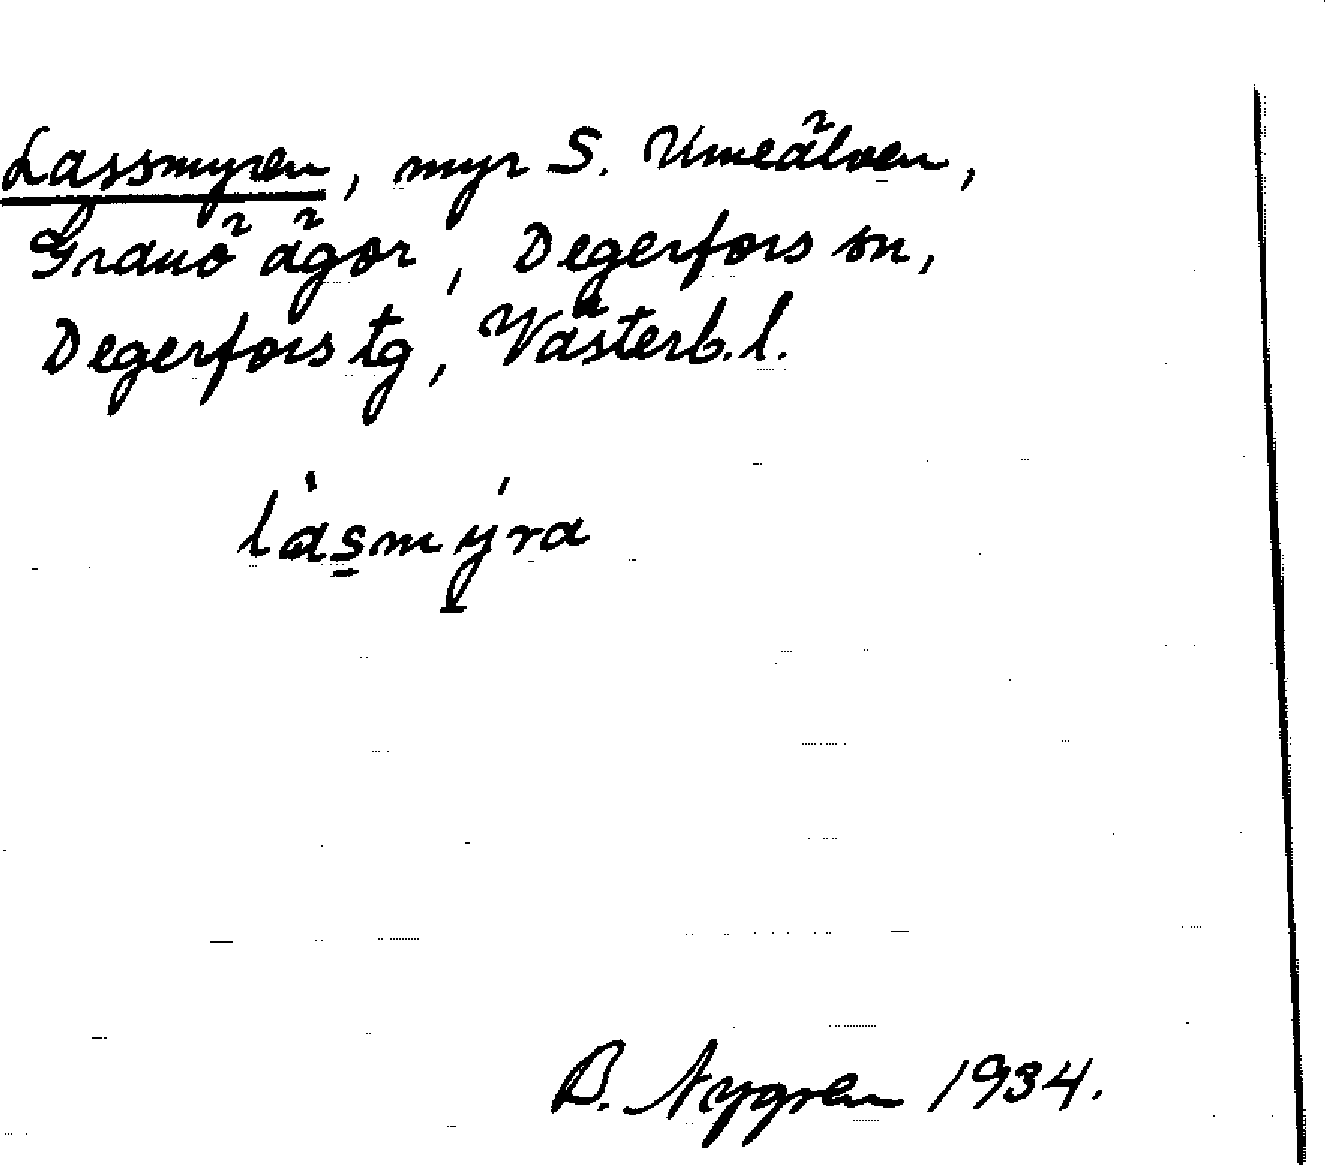 Lassmyren, myr S. Umeälven,
Granö ägor, Degerfors sn,
Degerfors tg, Västerb. l.
là̱smýra
B. Nygren 1934.